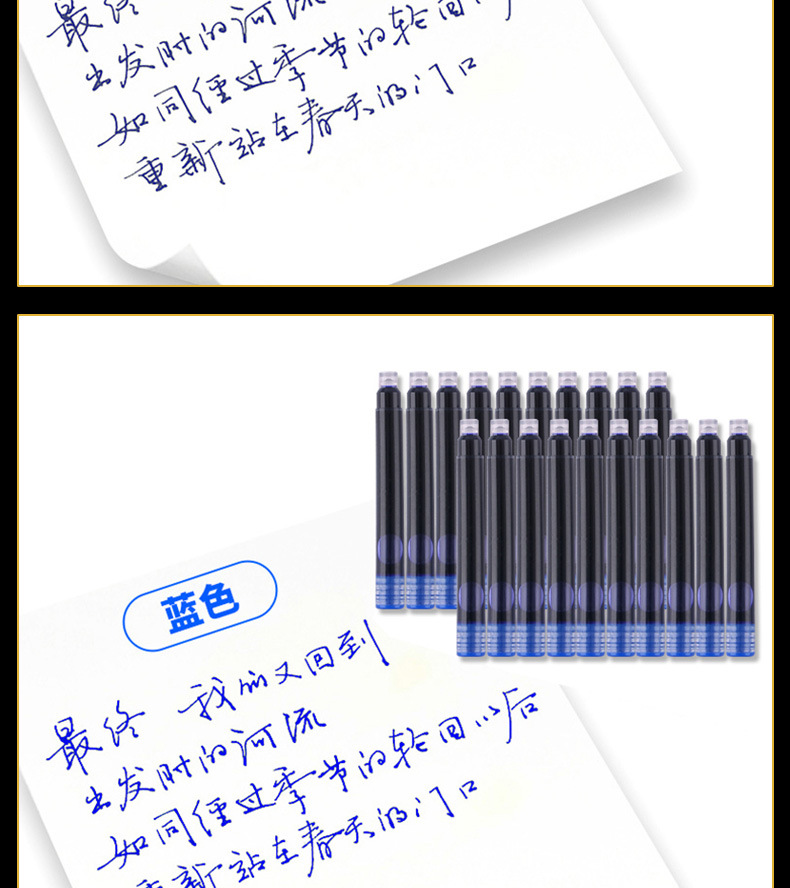 最终
出发时的河流
如同经过季节的轮回以后
重新站在春天的门口
蓝色
最终 我们又回到
出发时的河流
如同经过季节的轮回以后
重新站在春天的门口